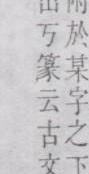 附於某字之下
出丂篆云古文